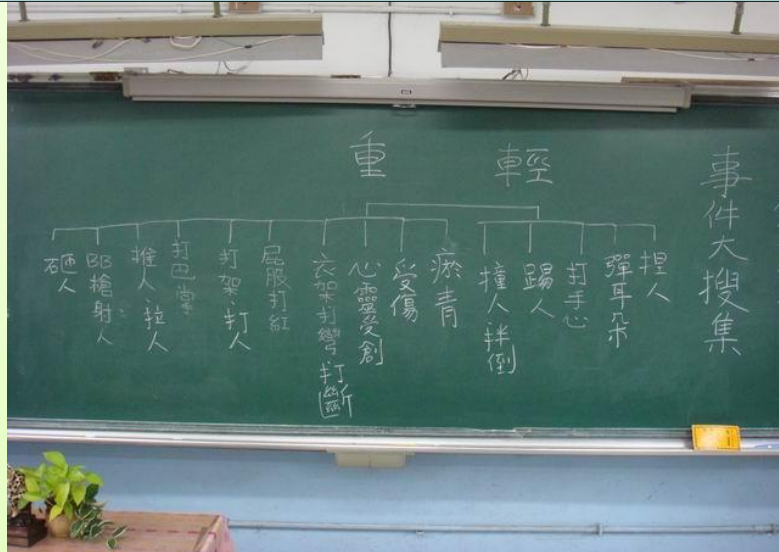 事件大搜集
輕
捏人
彈耳朵
打手心
踢人
撞人絆倒
重
瘀青
受傷
心靈受創
衣架打彎.打斷
屁股打紅
打架、打人
打巴掌
推人、拉人
BB槍射人
砸人